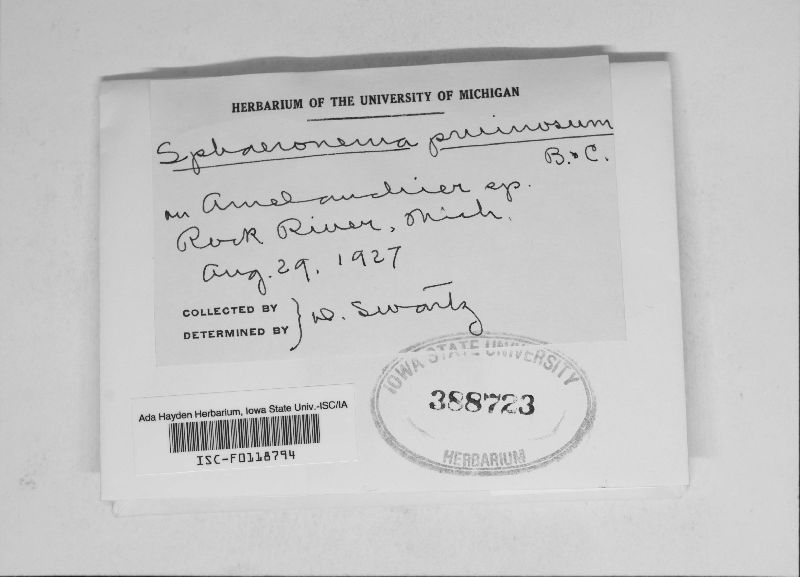 HERBARIUM OF THE UNIVERSITY OF MICHIGAN
Sphaeronema pruinosum
B. & C.
on Amelanchier sp.
Rock River, Mich.
Aug. 29, 1927
COLLECTED BY
DETERMINED BY
D. Swartz
IOWA STATE UNIVERSITY
388723
HERBARIUM
Ada Hayden Herbarium, Iowa State Univ.-ISC/IA
ISC-F0118794